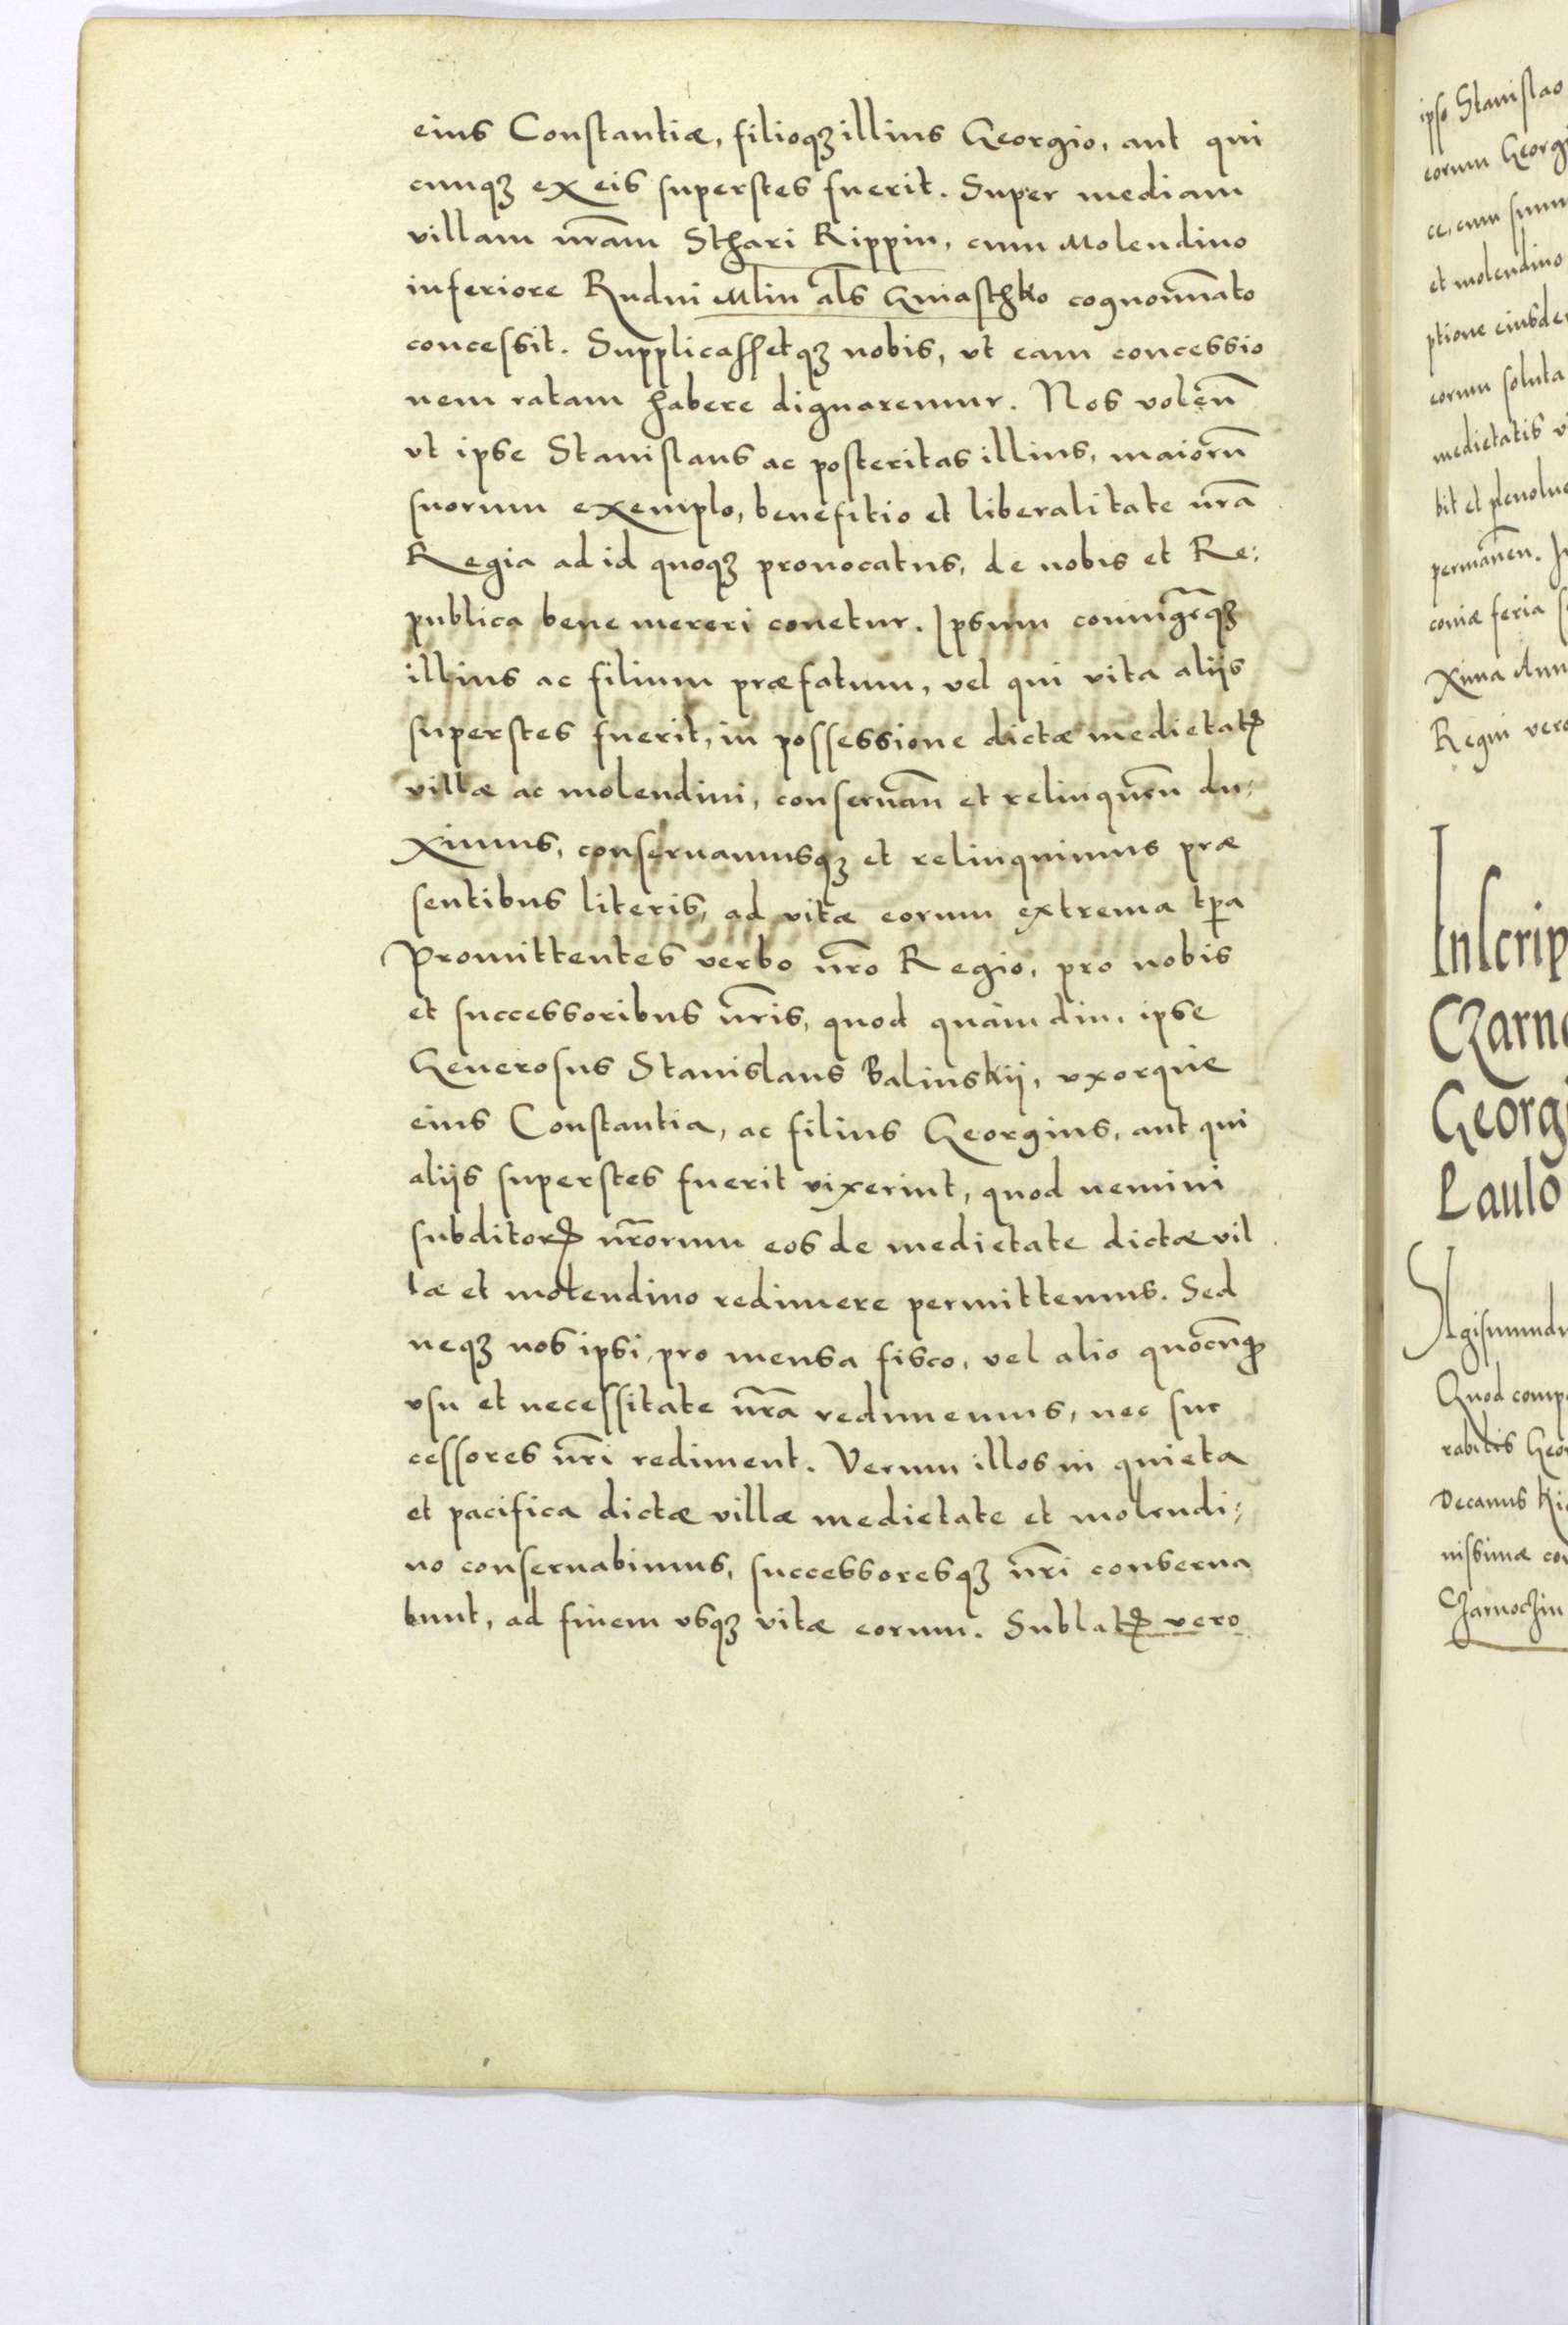 eius Constantiæ, filioqꝫ illius Georgio, aut qui
cunqꝫ ex eis superstes fuerit. Super mediam
villam nr̃am Sthari Rippin, cum Molendino
inferiore Rudni Mlin al̃s Gniasthko cognoĩnato
concessit. Supplicassetqꝫ nobis, vt eam concessio
nem ratam habere dignaremur. Nos volen̄
vt ipse Stanislaus ac posteritas illius, maiorū
suorum exemplo, benefitio et liberalitate nr̃a
Regia ad id quoqꝫ prouocatus, de nobis et Re:
publica bene mereri conetur. Ipsum coniugẽqꝫ
illius ac filium præfatum, vel qui vita aliis
superstes fuerit, in possessione dictæ medietatꝭ
villæ ac molendini, conseruañ et relinquen̄ du:
ximus, conseruamusqꝫ et relinquimus præ
sentibus literis, ad vitæ eorum extrema tp̃a
Promittentes verbo nr̃o Regio, pro nobis
et successoribus nr̃is, quod quàm diu, ipse
Generosus Stanislaus Balinskij, vxorque
eius Constantia, ac filius Georgius, aut qui
aliis superstes fuerit vixerint, quod nemini
subditorꝭ nr̃orum eos de medietate dictæ vil
læ et molendino redimere permittemus. Sed
neqꝫ nos ipsi, pro mensa fisco, vel alio quocunqꝫ
vsu et necessitate nr̃a redimemus, nec suc
cessores nr̃i rediment. Verum illos in quieta
et pacifica dictæ villæ medietate et molendi:
no conseruabimus, successoresqꝫ nr̃i conserua
bunt, ad finem vsqꝫ vitæ eorum. Sublatꝭ vero
ipso Stanislao
eorum Georgi
ce, cum summ
et molendino
ptione eiusde
eorum soluta
medietatis v
bit et
permanen̄.
coniæ feria
Xima Ann
Regni vero
Inscrip
Czarno
Georgi
Paulo
Sigismundu
Quod comp
rabilis Geor
Decanus Ki
nissimæ co
Czarnoczin